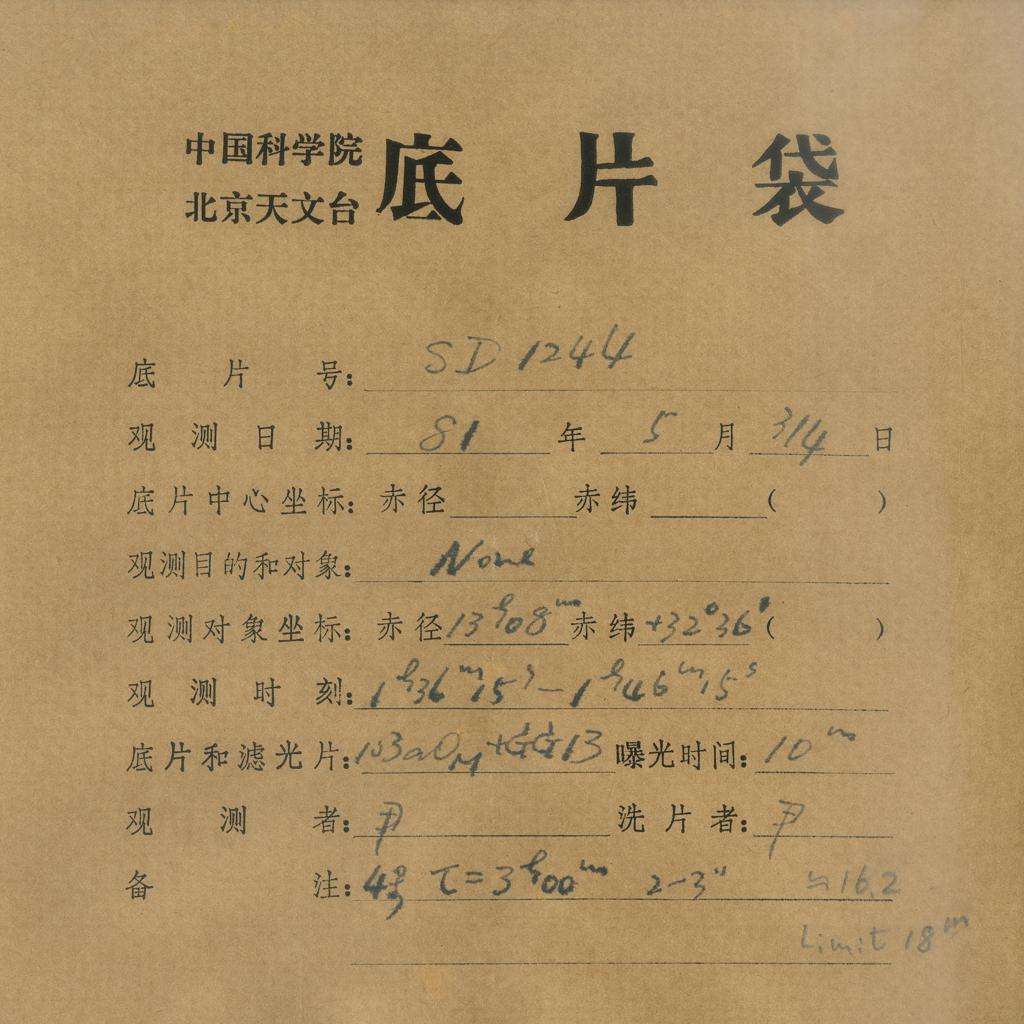 中国科学院
北京天文台 底片袋
底片号: SD 1244
观测日期: 81 年 5 月 3/4 日
底片中心坐标: 赤径 赤纬 ( )
观测目的和对象: None
观测对象坐标: 赤径 13h08m 赤纬 +32°36' ( )
观测时刻: 1h36m15s - 1h46m15s
底片和滤光片: 103aO +GG13 曝光时间: 10m
观测者: 尹 洗片者: 尹
备注: 4号 τ=3h00m 2-3" ≒16.2
Limit 18m